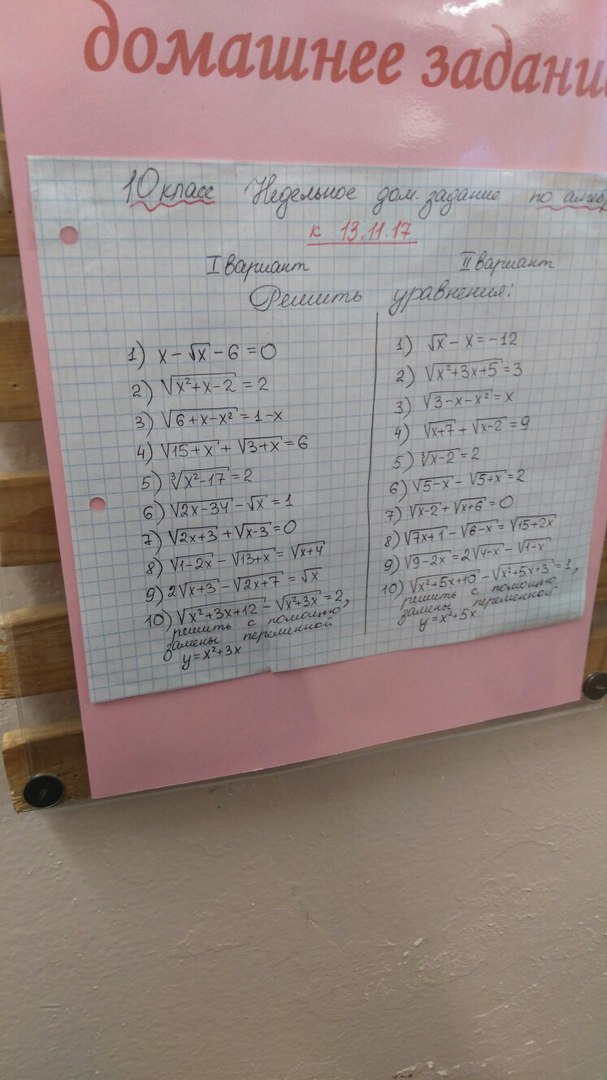 домашнее задани
10 класс Недельное дом. задание по алгеб
к 13.11.17
I Вариант
II Вариант
Решить уравнения:
1) x - √x - 6 = 0
2) √(x²+x-2) = 2
3) √(6+x-x²) = 1-x
4) √(15+x) + √(3+x) = 6
5) ³√(x²-17) = 2
6) √(2x-34) - √x = 1
7) √(2x+3) + √(x-3) = 0
8) √(1-2x) - √(13+x) = √(x+4)
9) 2√(x+3) - √(2x+7) = √x
10) √(x²+3x+12) - √(x²+3x) = 2,
решить с помощью
замены переменной
y = x²+3x
1) √x - x = -12
2) √(x²+3x+5) = 3
3) √(3-x-x²) = x
4) √(x+7) + √(x-2) = 9
5) ³√(x-2) = 2
6) √(5-x) - √(5+x) = 2
7) √(x-2) + √(x+6) = 0
8) √(7x+1) - √(6-x) = √(15+2x)
9) √(9-2x) = 2√(4-x) - √(1-x)
10) √(x²+5x+10) - √(x²+5x+3) = 1,
решить с помощью
замены переменной
y = x²+5x